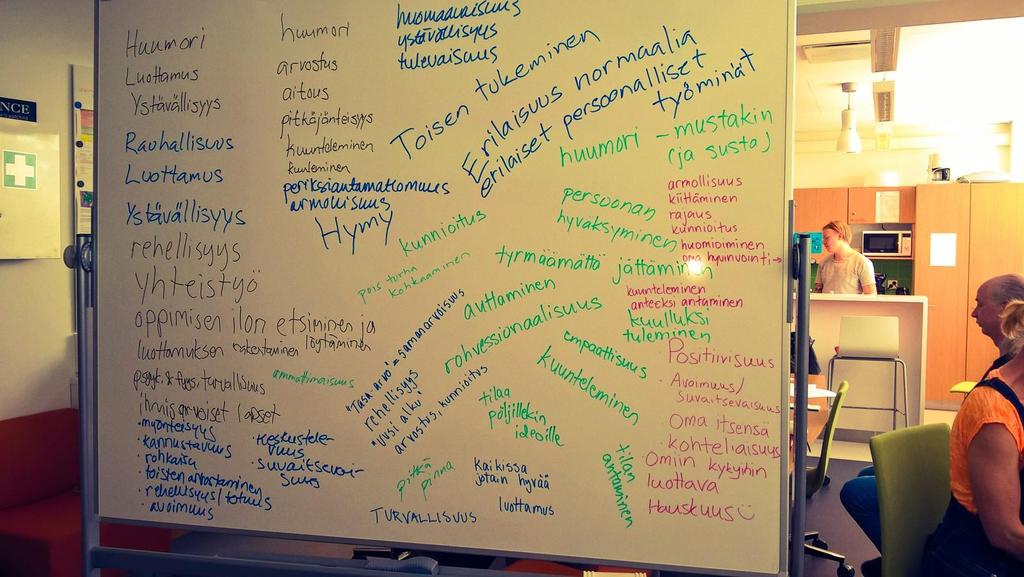 NCE
Huumori
Luottamus
Ystävällisyys
Rauhallisuus
Luottamus
Ystävällisyys
rehellisyys
yhteistyö
oppimisen ilon etsiminen ja
löytäminen
luottamuksen rakentaminen
psyyk. & fyys. turvallisuus
ihmisarvoiset /
• myönteisyys
• kannustavuus
• rohkaisu
• toisten arvostaminen
• rehellisyys / totuus
• avoimuus
• keskustele-
vuus
• suvaitsevai-
suus
huumori
arvostus
aitous
pitkäjänteisyys
kuunteleminen
kuuleminen
periksiantamattomuus
armollisuus
Hymy
huomaavaisuus
ystävällisyys
tulevaisuus
Toisen tukeminen
Erilaisuus normaalia
erilaiset persoonalliset
työminät
huumori - mustakin
(ja susta)
persoonan
hyväksyminen
kunnioitus
pois turha
kohkaaminen
tyrmäämättä jättäminen
auttaminen
rohvessionaalisuus
ammattimaisuus
"Tasa-arvo" = samanarvoisuus
rehellisyys
"uusi alku"
arvostus, kunnioitus
empaattisuus
kuunteleminen
tilaa
pöljillekin
ideoille
pitkä
pinna
Kaikissa
jotain hyvää
luottamus
TURVALLISUUS
tilan
antaminen
armollisuus
kiittäminen
rajaus
kunnioitus
huomioiminen
oma hyvinvointi →
kuunteleminen
anteeksi antaminen
kuulluksi
tuleminen
Positiivisuus
• Avoimuus/
Suvaitsevaisuus
Oma itsensä
• kohteliaisuus
Omiin kykyihin
luottava
Hauskuus